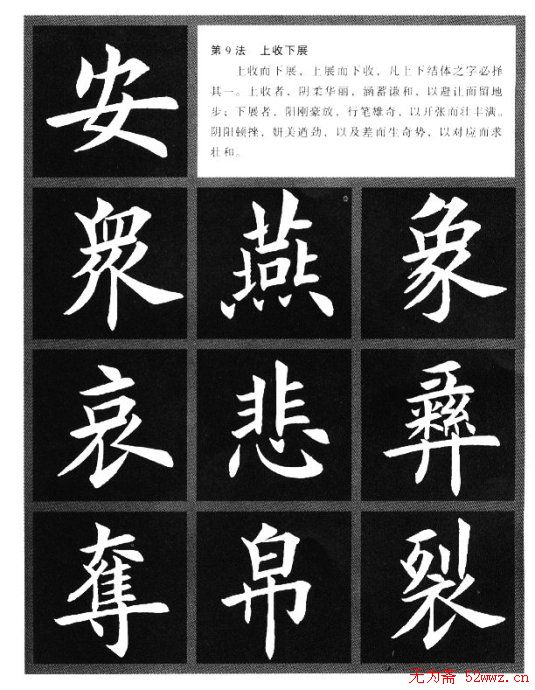 安
第9法 上收下展
上收而下展,上展而下收,凡上下结体之字必择
其一。上收者,阴柔华丽,涵蓄谦和,以避让而留地
步;下展者,阳刚豪放,行笔雄奇,以开张而壮丰满。
阴阳顿挫,妍美遒劲,以及差而生奇势,以对应而求
壮和。
眾 燕 象
哀 悲 彝
奪 帛 裂
无为斋 52wwz.cn